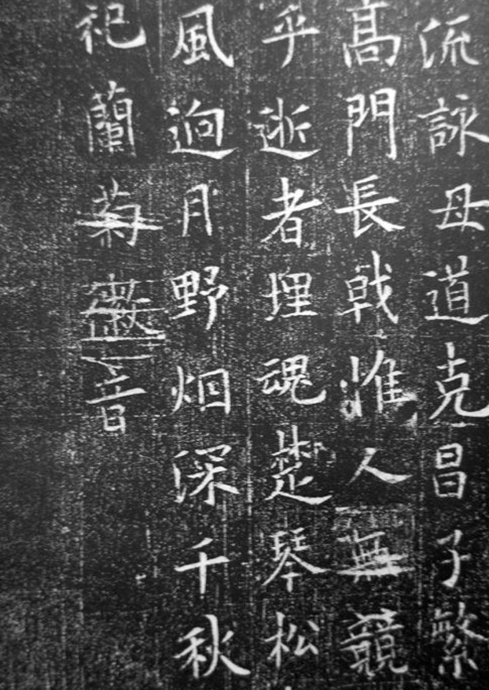 流詠母道克昌子繁
高門長戟惟人無競
乎逝者埋魂楚琴松
風迥月野烟深千秋
祀蘭菊徽音